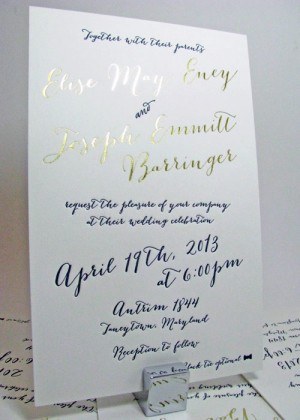 Together with their parents
Elise May Eney
and
Joseph Emmitt
Barringer
request the pleasure of your company
at their wedding celebration
April 19th, 2013
at 6:00pm
Antrim 1844
Taneytown, Maryland
Reception to follow
tie optional